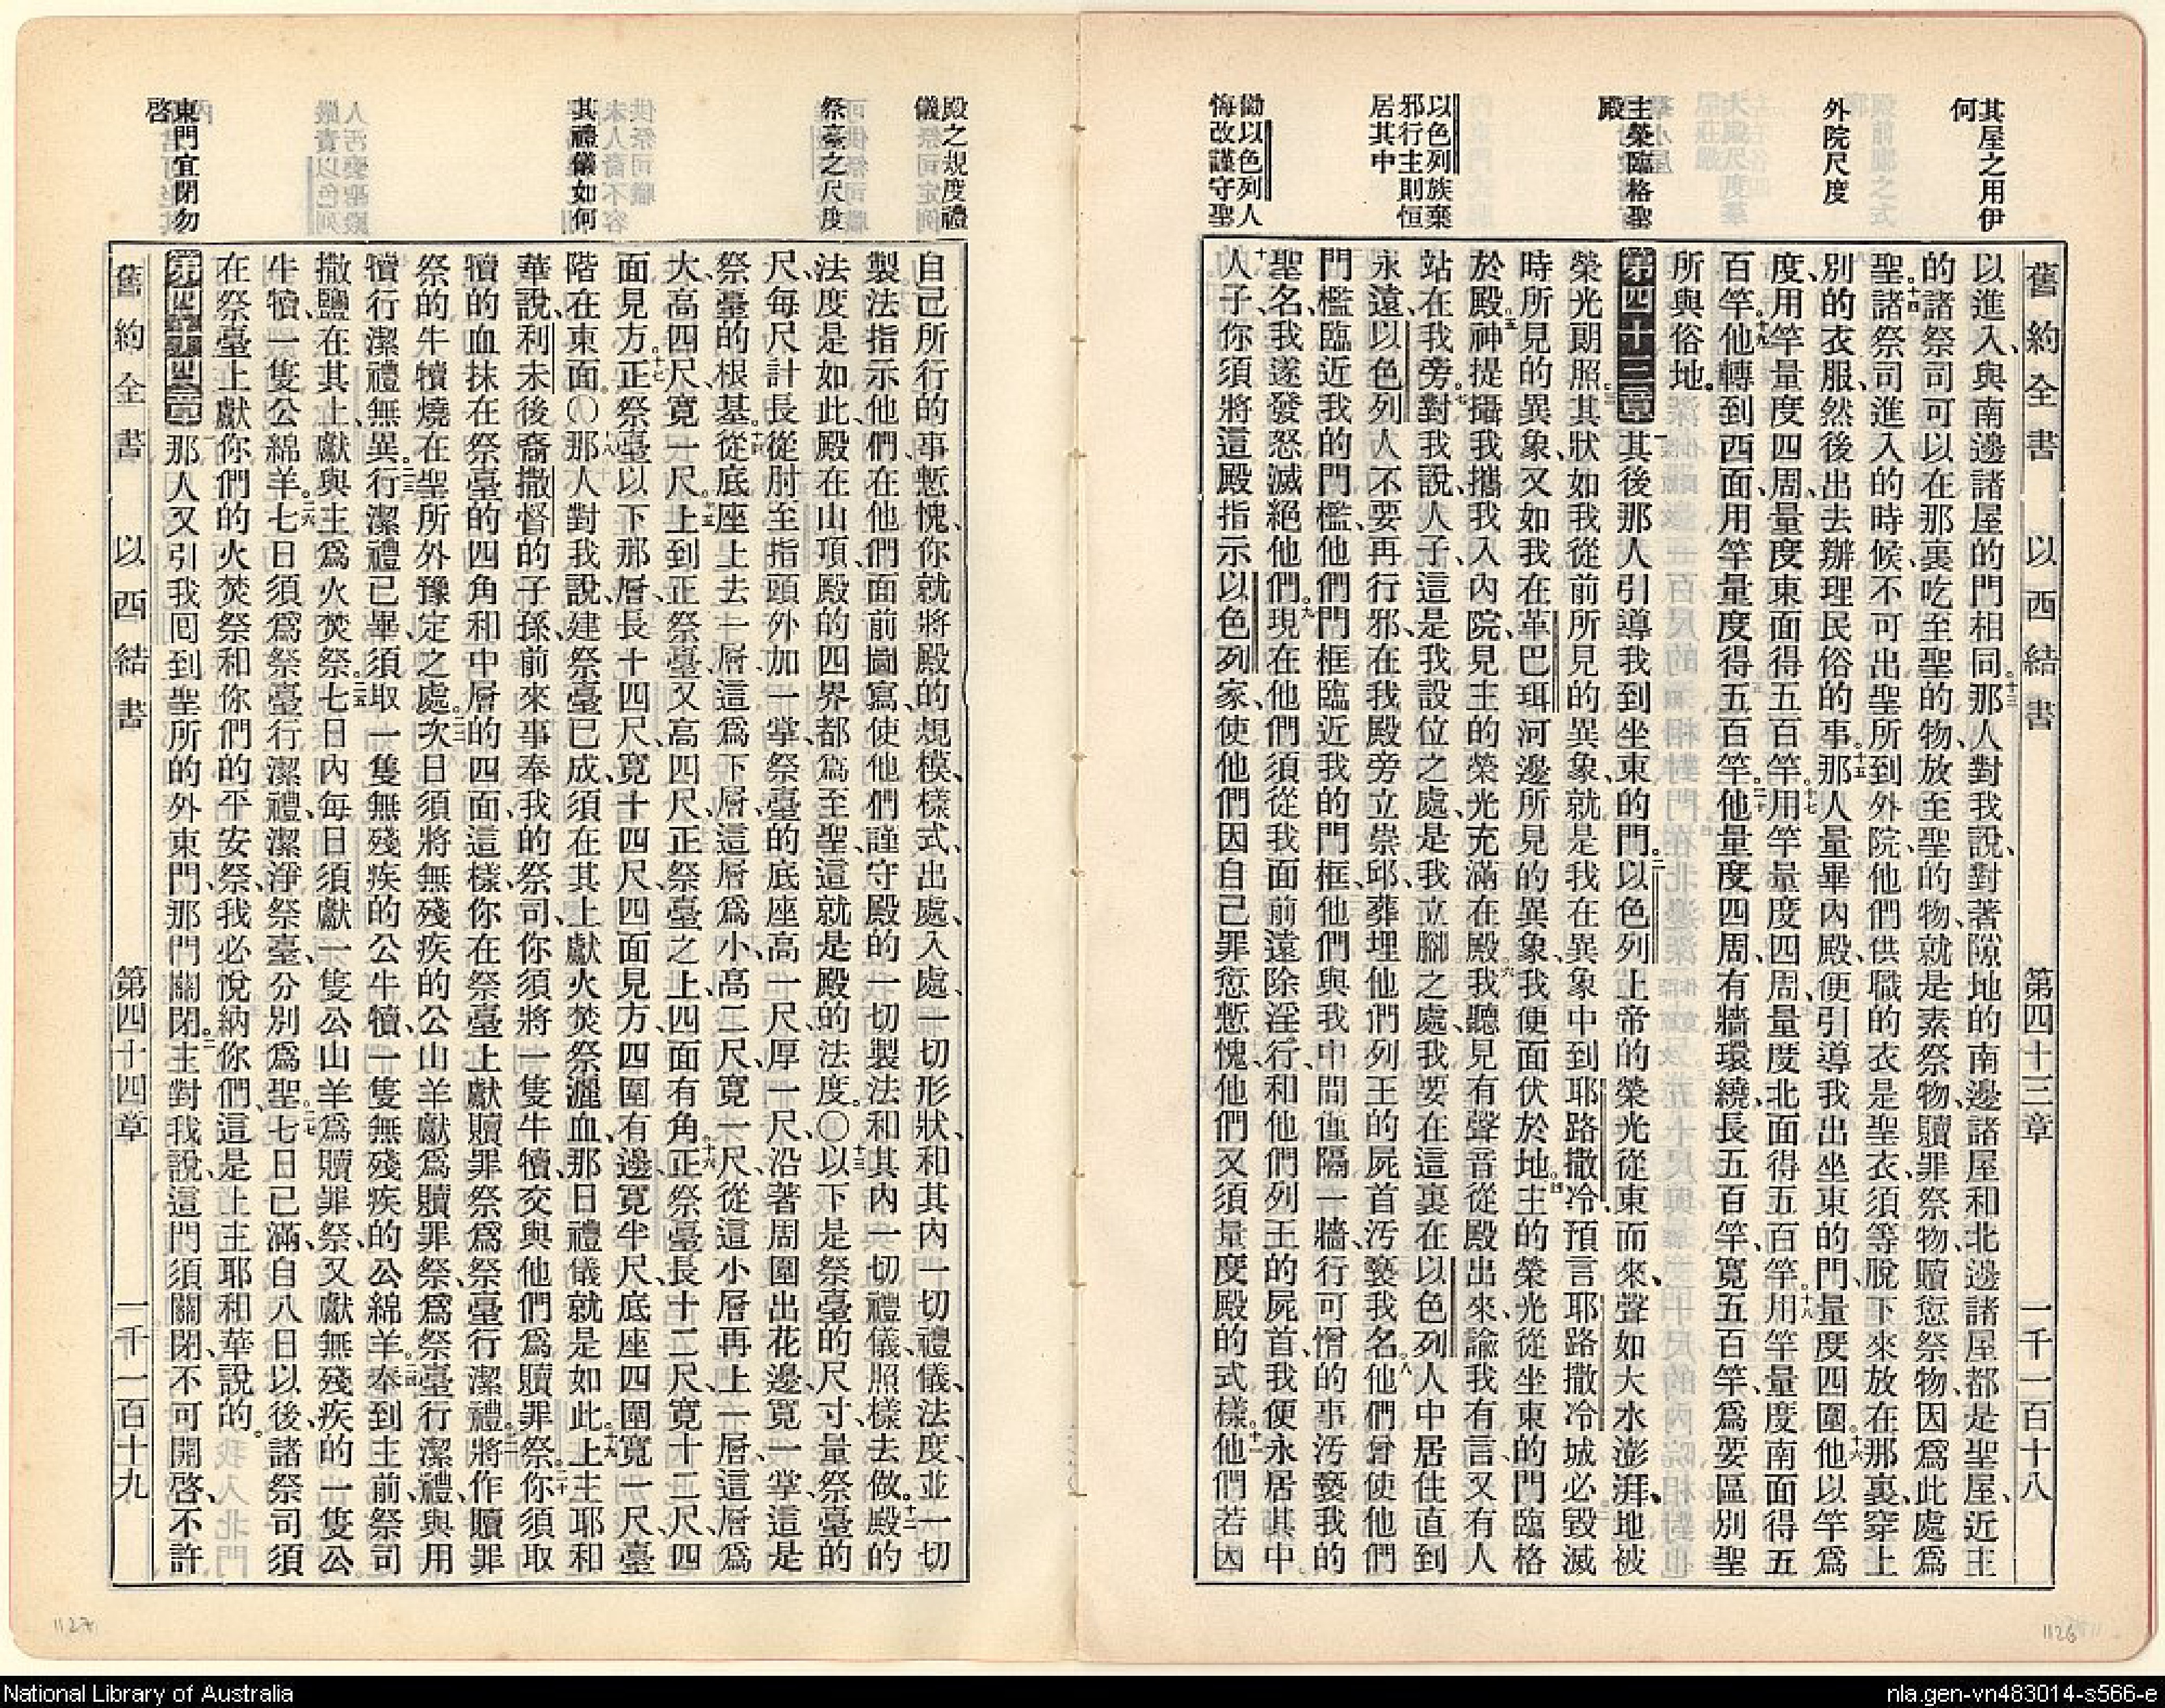 其屋之用伊
何
外院尺度
主榮臨格聖
殿
以色列族棄
邪行主則恒
居其中
勸以色列人
悔改謹守聖
舊約全書 以西結書 第四十三章 一千一百十八
以進入、與南邊諸屋的門相同。十三那人對我說、對著隙地的南邊諸屋和北邊諸屋都是聖屋、近主
的諸祭司可以在那裏吃至聖的物、放至聖的物、就是素祭物、贖罪祭物、贖愆祭物、因爲此處爲
聖。十四諸祭司進入的時候、不可出聖所到外院、他們供職的衣是聖衣、須等脫下來放在那裏、穿上
別的衣服、然後出去辦理民俗的事。十五那人量畢內殿、便引導我出坐東的門、量度四圍。十六他以竿爲
度、用竿量度四周、量度東面得五百竿。十七用竿量度四周、量度北面得五百竿。十八用竿量度南面得五
百竿。十九他轉到西面、用竿量度得五百竿。二十他量度四周、有牆環繞、長五百竿、寬五百竿、爲要區別聖
所與俗地。
第四十三章 一其後那人引導我到坐東的門。二以色列上帝的榮光從東而來、聲如大水澎湃、地被
榮光照、三其狀如我從前所見的異象、就是我在異象中到耶路撒冷預言耶路撒冷城必毀滅
時所見的異象、又如我在革巴珥河邊所見的異象、我便面伏於地。四主的榮光從坐東的門臨格
於殿。五神提攝我、攜我入內院、見主的榮光充滿在殿。六我聽見有聲音從殿出來、諭我有言、又有人
站在我旁。七對我說、人子、這是我設位之處、是我立腳之處、我要在這裏在以色列人中居住直到
永遠、以色列人不要再行邪、在我殿旁立崇邱、葬埋他們列王的屍首、汚褻我名。八他們曾使他們
門檻臨近我的門檻、他們門框臨近我的門框、他們與我中間僅隔一牆、行可憎的事、汚褻我的
聖名、我遂發怒滅絕他們。九現在他們須從我面前遠除淫行、和他們列王的屍首、我便永居其中。
十人子、你須將這殿指示以色列家、使他們因自己罪愆慙愧、他們又須量度殿的式樣。十一他們若因
殿之規度禮
儀
祭臺之尺度
其禮儀如何
東門宜閉勿
啓
自己所行的事慙愧、你就將殿的規模、樣式、出處、入處、一切形狀、和其內一切禮儀、法度、並一切
製法指示他們、在他們面前圖寫、使他們謹守殿的一切製法和其內一切禮儀、照樣去做。十二殿的
法度是如此、殿在山頂、殿的四界都爲至聖、這就是殿的法度。〇十三以下是祭臺的尺寸、量祭臺的
尺、每尺計長從肘至指頭外加一掌、祭臺的底座高一尺、厚一尺、沿著周圍出花邊、寬一掌、這是
祭臺的根基。十四從底座上去一層、這爲下層、這層爲小、高二尺、寬一尺、從這小層再上一層、這層爲
大、高四尺、寬一尺。十五上到正祭臺、又高四尺、正祭臺之上、四面有角。十六正祭臺長十二尺、寬十二尺、四
面見方。十七正祭臺以下那層、長十四尺、寬十四尺、四面見方、四圍有邊、寬半尺、底座四圍寬一尺、臺
階在東面。〇十八那人對我說、建祭臺已成、須在其上獻火焚祭灑血、那日禮儀就是如此。十九上主耶和
華說、利未後裔撒督的子孫、前來事奉我的祭司、你須將一隻牛犢、交與他們爲贖罪祭。二十你須取
犢的血抹在祭臺的四角和中層的四面、這樣、你在祭臺上獻贖罪祭、爲祭臺行潔禮。二一將作贖罪
祭的牛犢燒在聖所外豫定之處。二二次日須將無殘疾的公山羊獻爲贖罪祭、爲祭臺行潔禮、與用
犢行潔禮無異。二三行潔禮已畢、須取一隻無殘疾的公牛犢、一隻無殘疾的公綿羊。二四奉到主前、祭司
撒鹽在其上、獻與主爲火焚祭。二五七日內每日須獻一隻公山羊爲贖罪祭、又獻無殘疾的一隻公
牛犢、一隻公綿羊。二六七日須爲祭臺行潔禮、潔淨祭臺、分別爲聖。二七七日已滿、自八日以後、諸祭司須
在祭臺上獻你們的火焚祭和你們的平安祭、我必悅納你們、這是上主耶和華說的。
第四十四章 一那人又引我囘到聖所的外東門、那門關閉。二主對我說、這門須關閉、不可開啓、不許
舊約全書 以西結書 第四十四章 一千一百十九
1127
1126
National Library of Australia
nla.gen-vn483014-s566-e